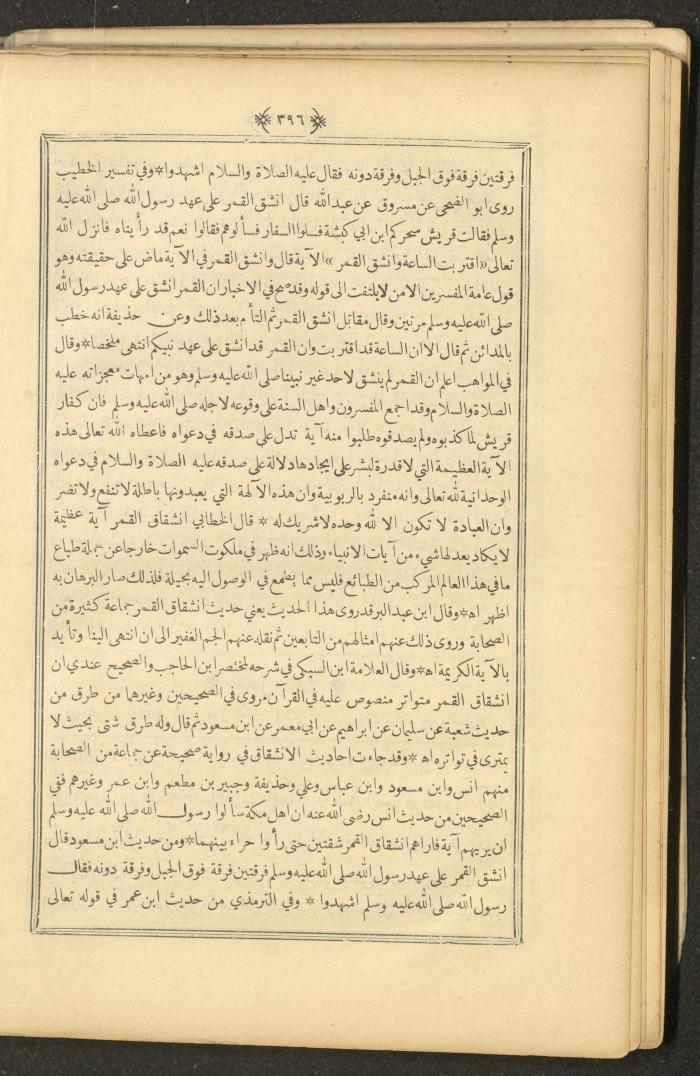 ٣٩٦
فرقتين فرقة فوق الجبل وفرقة دونه فقال عليه الصلاة والسلام اشهدوا * وفي تفسير الخطيب
روى ابو الضحى عن مسروق عن عبدالله قال انشق القمر على عهد رسول الله صلى الله عليه
وسلم فقالت قريش سحركم ابن ابي كبشة فسلوا السفار فسألوهم فقالوا نعم قد رأيناه فانزل الله
تعالى «اقتربت الساعة وانشق القمر» الآية قال وانشق القمر في الآية ماض على حقيقته وهو
قول عامة المفسرين الا من لا يلتفت الى قوله وقد صح في الاخبار ان القمر انشق على عهد رسول الله
صلى الله عليه وسلم مرتين وقال مقاتل انشق القمر ثم التأم بعد ذلك وعن حذيفة انه خطب
بالمدائن ثم قال الا ان الساعة قد اقتربت وان القمر قد انشق على عهد نبيكم انتهى ملخصا * وقال
في المواهب اعلم ان القمر لم ينشق لاحد غير نبينا صلى الله عليه وسلم وهو من امهات معجزاته عليه
الصلاة والسلام وقد اجمع المفسرون واهل السنة على وقوعه لاجله صلى الله عليه وسلم فان كفار
قريش لما كذبوه ولم يصدقوه طلبوا منه آية تدل على صدقه في دعواه فاعطاه الله تعالى هذه
الآية العظيمة التي لا قدرة لبشر على ايجادها دلالة على صدقه عليه الصلاة والسلام في دعواه
الوحدانية لله تعالى وانه منفرد بالربوبية وان هذه الآلهة التي يعبدونها باطلة لا تنفع ولا تضر
وان العبادة لا تكون الا لله وحده لا شريك له * قال الخطابي انشقاق القمر آية عظيمة
لا يكاد يعدلها شيء من آيات الانبياء وذلك انه ظهر في ملكوت السموات خارجا عن جملة طباع
ما في هذا العالم المركب من الطبائع فليس مما يطمع في الوصول اليه بحيلة فلذلك صار البرهان به
اظهر اه * وقال ابن عبد البر قد روى هذا الحديث يعني حديث انشقاق القمر جماعة كثيرة من
الصحابة وروى ذلك عنهم امثالهم من التابعين ثم نقله عنهم الجم الغفير الى ان انتهى الينا وتأيد
بالآية الكريمة اه * وقال العلامة ابن السبكي في شرحه لمختصر ابن الحاجب والصحيح عندي ان
انشقاق القمر متواتر منصوص عليه في القرآن مروى في الصحيحين وغيرهما من طرق من
حديث شعبة عن سليمان عن ابراهيم عن ابي معمر عن ابن مسعود ثم قال وله طرق شتى بحيث لا
يمترى في تواتره اه * وقد جاءت احاديث الانشقاق في رواية صحيحة عن جماعة من الصحابة
منهم انس وابن مسعود وابن عباس وعلي وحذيفة وجبير بن مطعم وابن عمر وغيرهم ففي
الصحيحين من حديث انس رضى الله عنه ان اهل مكة سألوا رسول الله صلى الله عليه وسلم
ان يريهم آية فاراهم انشقاق القمر شقتين حتى رأوا حراء بينهما * ومن حديث ابن مسعود قال
انشق القمر على عهد رسول الله صلى الله عليه وسلم فرقتين فرقة فوق الجبل وفرقة دونه فقال
رسول الله صلى الله عليه وسلم اشهدوا * وفي الترمذي من حديث ابن عمر في قوله تعالى